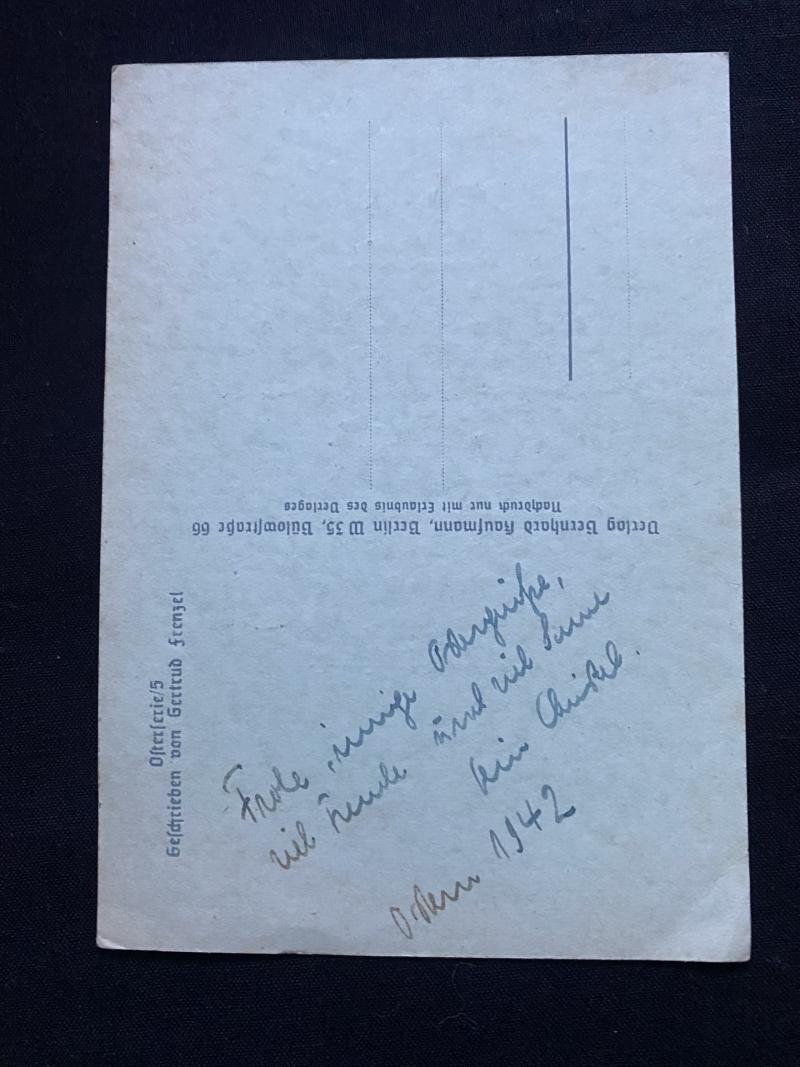 Osterserie/5
Geschrieben von Gertrud Frenzel
Verlag Bernhard Kaufmann, Berlin W 35, Bülowstraße 66
Nachdruck nur mit Erlaubnis des Verlages
Frohe, innige Ostergrüße,
viel Freude und viel Sonne
Dein Christel.
Ostern 1942